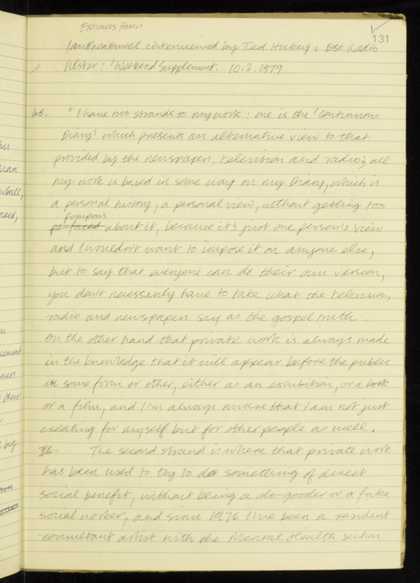 131
Ian Breakwell interviewed by Ted Hickey: BBC Radio
Ulster: 'Weekend Supplement'. 10.2.1979
I.B. "I have two strands to my work: one is the 'Continuous
Diary' which presents an alternative view to that
provided by the newspaper, television and radio; all
my work is based in some way on my Diary, which is
a personal history, a personal view, without getting too
pompous
po-faced about it, because it's just one person's view
and I wouldn't want to impose it on anyone else,
but to say that everyone can do their own version,
you don't necessarily have to take what the television,
radio and newspapers say as the gospel truth.
On the other hand that private work is always made
in the knowledge that it will appear before the public
in some form or other, either as an exhibition, or a book
or a film, and I'm always aware that I am not just
creating for myself but for other people as well.
The second strand is where that private work
has been used to try to do something of direct
social benefit, without being a do-gooder or a fake
social worker, and since 1976 I've been a resident
consultant artist with the Mental Health section